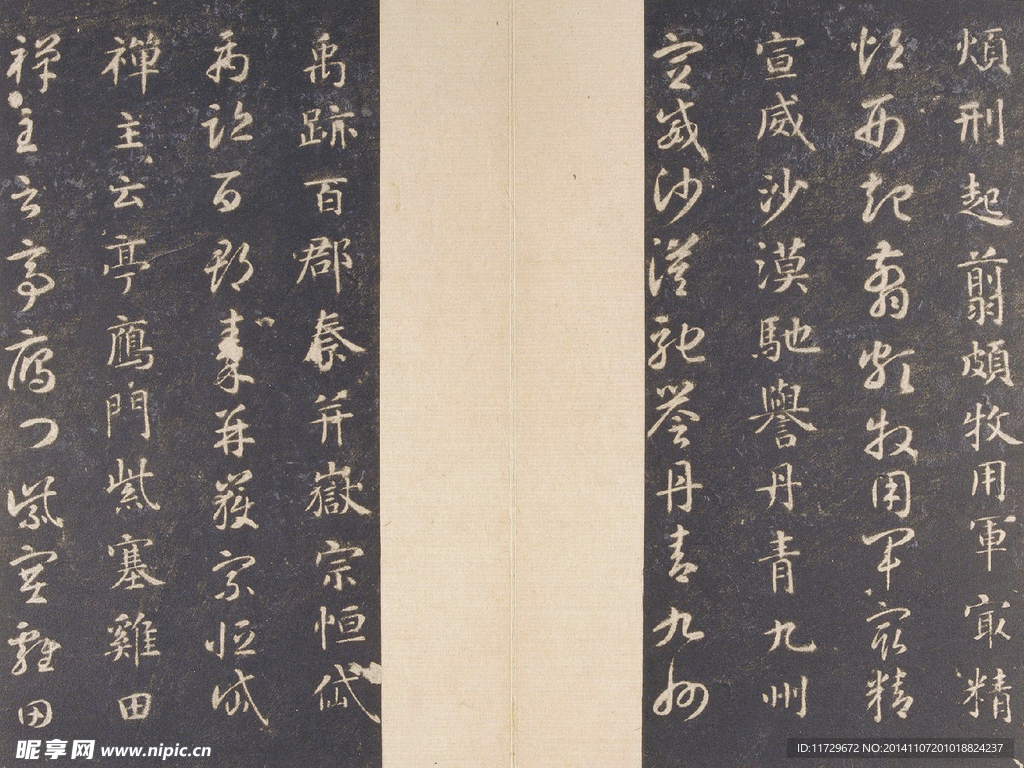 煩刑起翦頗牧用軍㝡精
煩刑起翦頗牧用軍㝡精
宣威沙漠馳譽丹青九州
宣威沙漠馳譽丹青九州
禹跡百郡秦并嶽宗恒岱
禹跡百郡秦并嶽宗恒岱
禪主云亭鴈門紫塞雞田
禪主云亭鴈門紫塞雞田
昵享网 www.nipic.cn
ID:11729672 NO:20141107201018824237